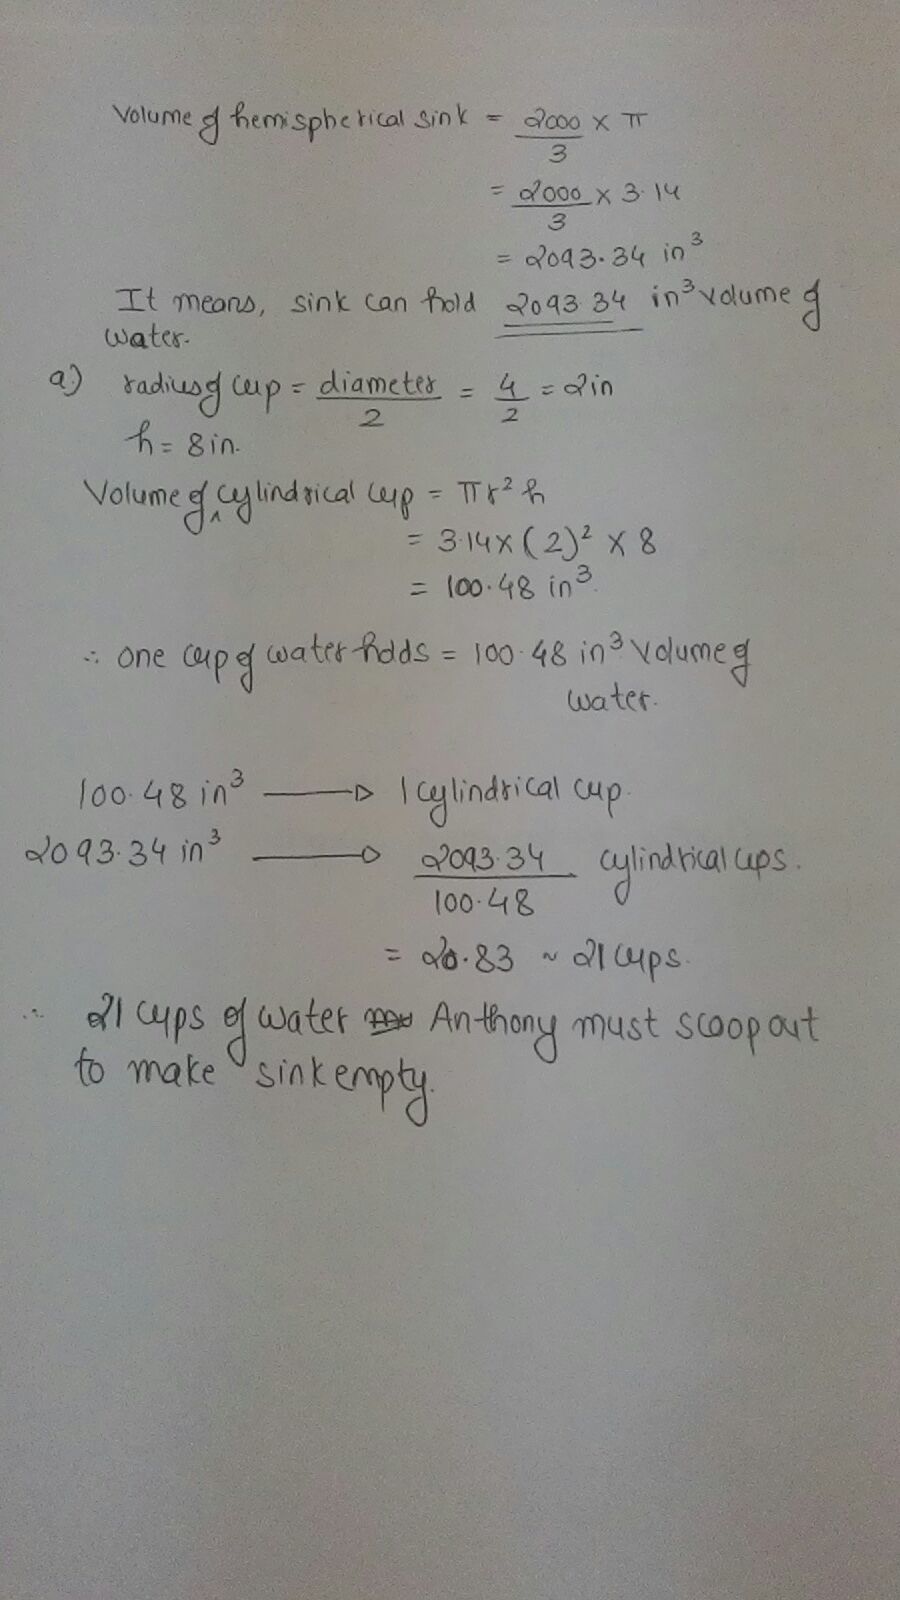 Volume of hemispherical sink = 2000/3 × π
= 2000/3 × 3.14
= 2093.34 in³
It means, sink can hold 2093.34 in³ volume of
water.
a) radius of cup = diameter/2 = 4/2 = 2in
h = 8in.
Volume of ‸ cylindrical cup = πr² h
= 3.14 × (2)² × 8
= 100.48 in³.
∴ one cup of water holds = 100.48 in³ volume of
water.
100.48 in³ ⟶ 1 cylindrical cup.
2093.34 in³ ⟶ 2093.34/100.48 cylindrical cups.
= 20.83 ~ 21 cups.
∴ 21 cups of water Anthony must scoop out
to make sink empty.